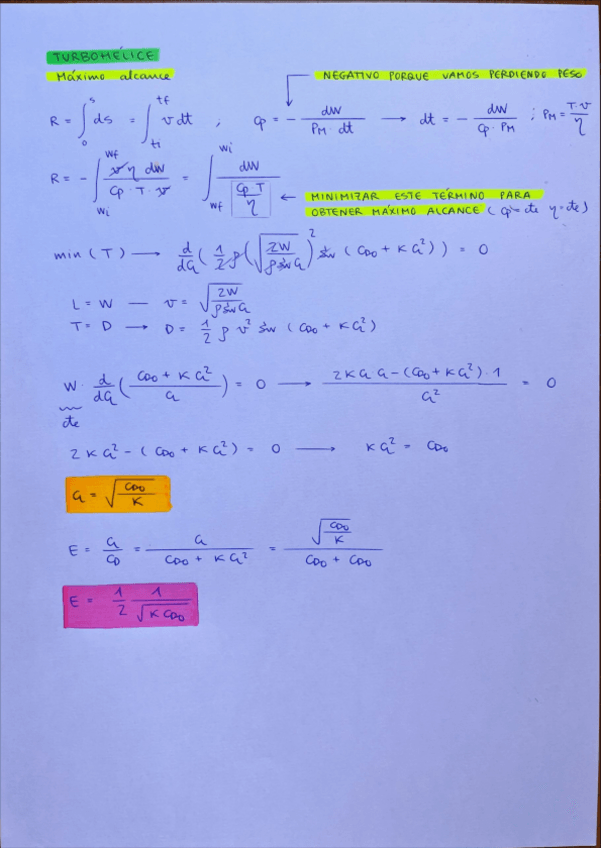 TURBOHÉLICE
Máximo alcance
NEGATIVO PORQUE VAMOS PERDIENDO PESO
R = ∫₀ˢ ds = ∫_{ti}^{tf} v dt ; Cp = - dW / (PM · dt) → dt = - dW / (Cp · PM) ; PM = T·v / η
R = - ∫_{Wi}^{Wf} v η dW / (Cp · T · v) = ∫_{Wf}^{Wi} dW / (Cp T / η) ← MINIMIZAR ESTE TÉRMINO PARA
OBTENER MÁXIMO ALCANCE (Cp = cte η = cte)
min (T) → d/dCL ( 1/2 ρ ( √(2W / (ρ Sw CL)) )² Sw (CD0 + K CL²) ) = 0
L = W — v = √(2W / (ρ Sw CL))
T = D → D = 1/2 ρ v² Sw (CD0 + K CL²)
W · d/dCL ( (CD0 + K CL²) / CL ) = 0 → (2K CL CL - (CD0 + K CL²) · 1) / CL² = 0
cte
2 K CL² - (CD0 + K CL²) = 0 → K CL² = CD0
CL = √(CD0 / K)
E = CL / CD = CL / (CD0 + K CL²) = √(CD0 / K) / (CD0 + CD0)
E = 1/2 1 / √(K CD0)